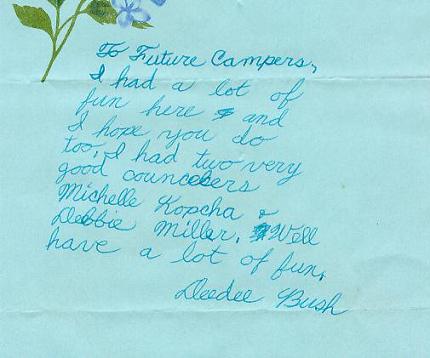 To Future Campers,
I had a lot of
fun here and
I hope you do
too, I had two very
good councelers
Michelle Kopcha &
Debbie Miller. Well
have a lot of fun,
Deedee Bush